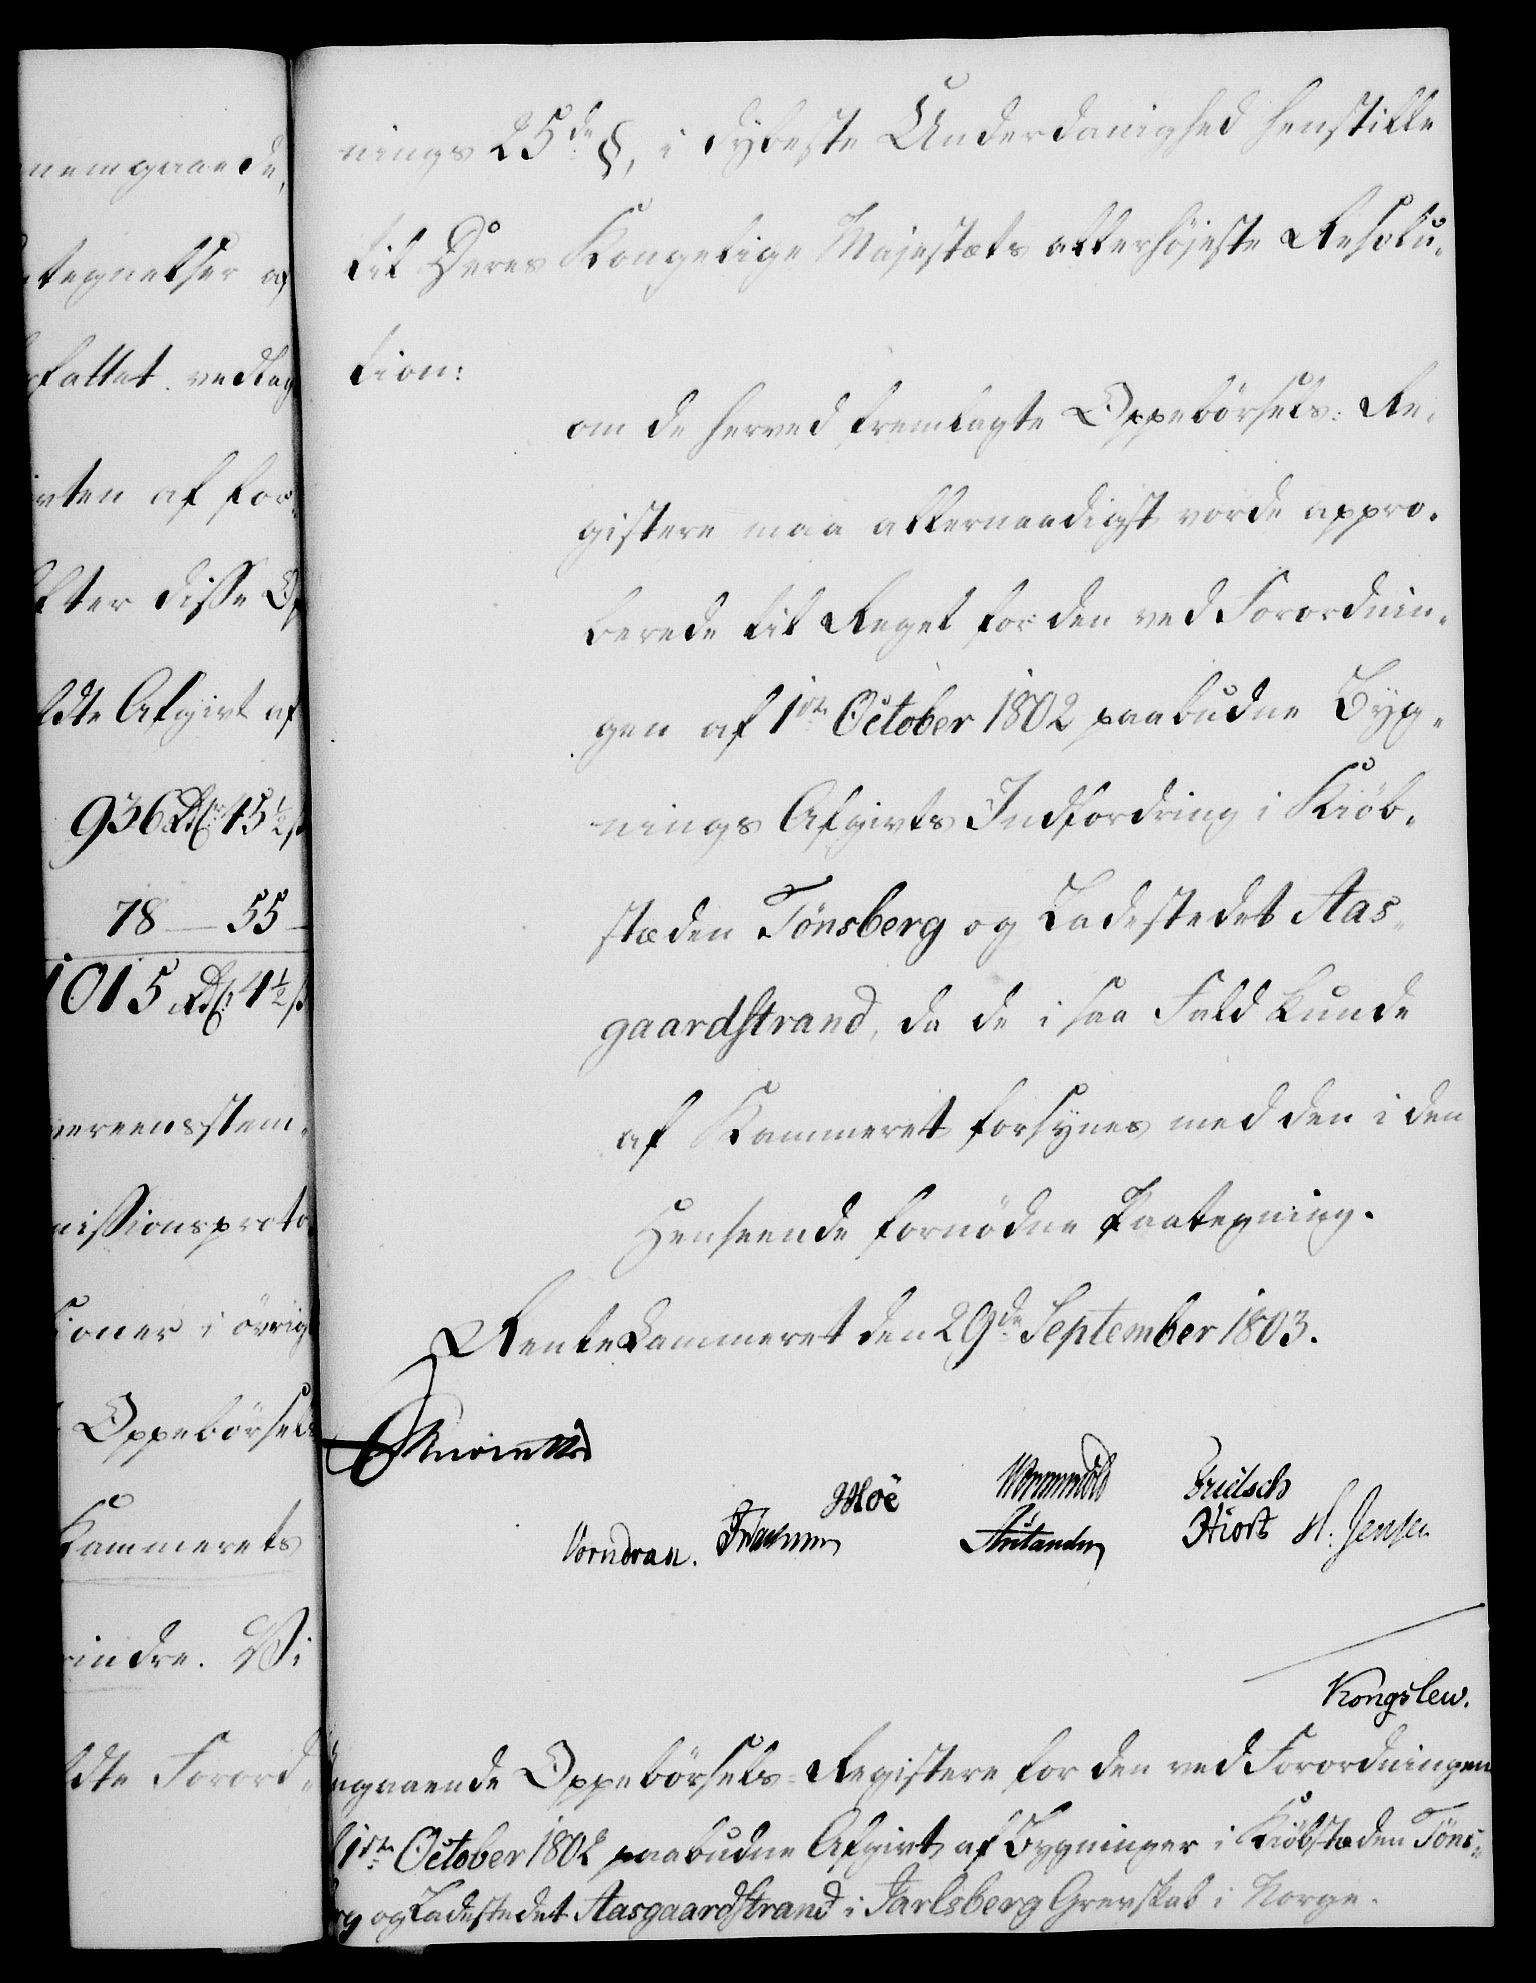 nemgaaende,
tegnelser af
fattet vedlag
ivten af for¬
fter disse Op
ldte Afgivt af
936 Rdlr 45½ s
78 — 55 —
1015 Rdlr 4½ s
vereensstem¬
missionsproto
tioner i övrig
Oppebörsels
Kammerets
indre. Vi
ldte Forord¬
nings 25de §, i dybeste Underdanighed henstille
til Deres Kongelige Majestæts allerhöjeste Resolu¬
tion:
om de herved fremlagte Oppebörsels-Re¬
gistere maa allernaadigst vorde appro¬
berede til Regel for den ved Forordnin¬
gen af 1ste October 1802 paabudne Byg¬
nings Afgivts Indfordring i Kiöb¬
stæden Tönsberg og Ladestedet Aas¬
gaardstrand, da de i saa Fald kunde
af Kammeret forsynes med den i den
Henseende fornödne Paategning.
Rentekammeret den 29de September 1803.
Moë Wormskiold Fridsch
Vorndran. Hiort H. Jensen
Kongslew.
ngaaende Oppebörsels-Registere for den ved Forordningen
1ste October 1802 paabudne Afgivt af Bygninger i Kiöbstæden Töns¬
rg og Ladestedet Aasgaardstrand i Jarlsberg Grevskab i Norge.